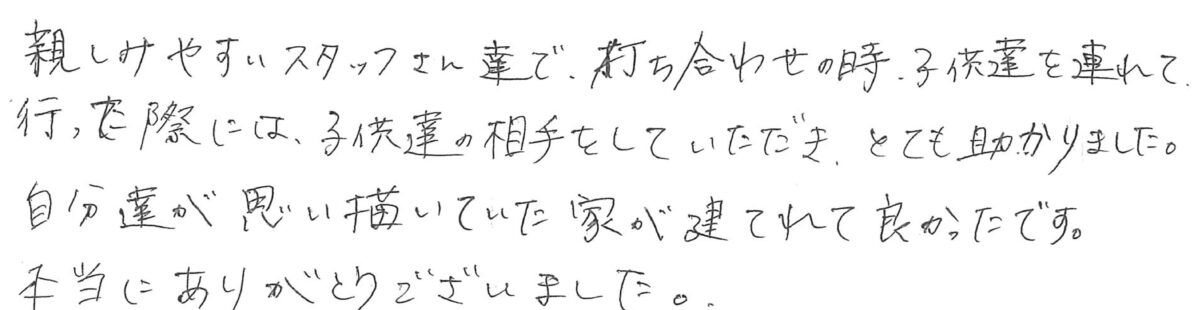 親しみやすいスタッフさん達で、打ち合わせの時、子供達を連れて、
行った際には、子供達の相手をしていただき、とても助かりました。
自分達が思い描いていた家が建てれて良かったです。
本当にありがとうございました。